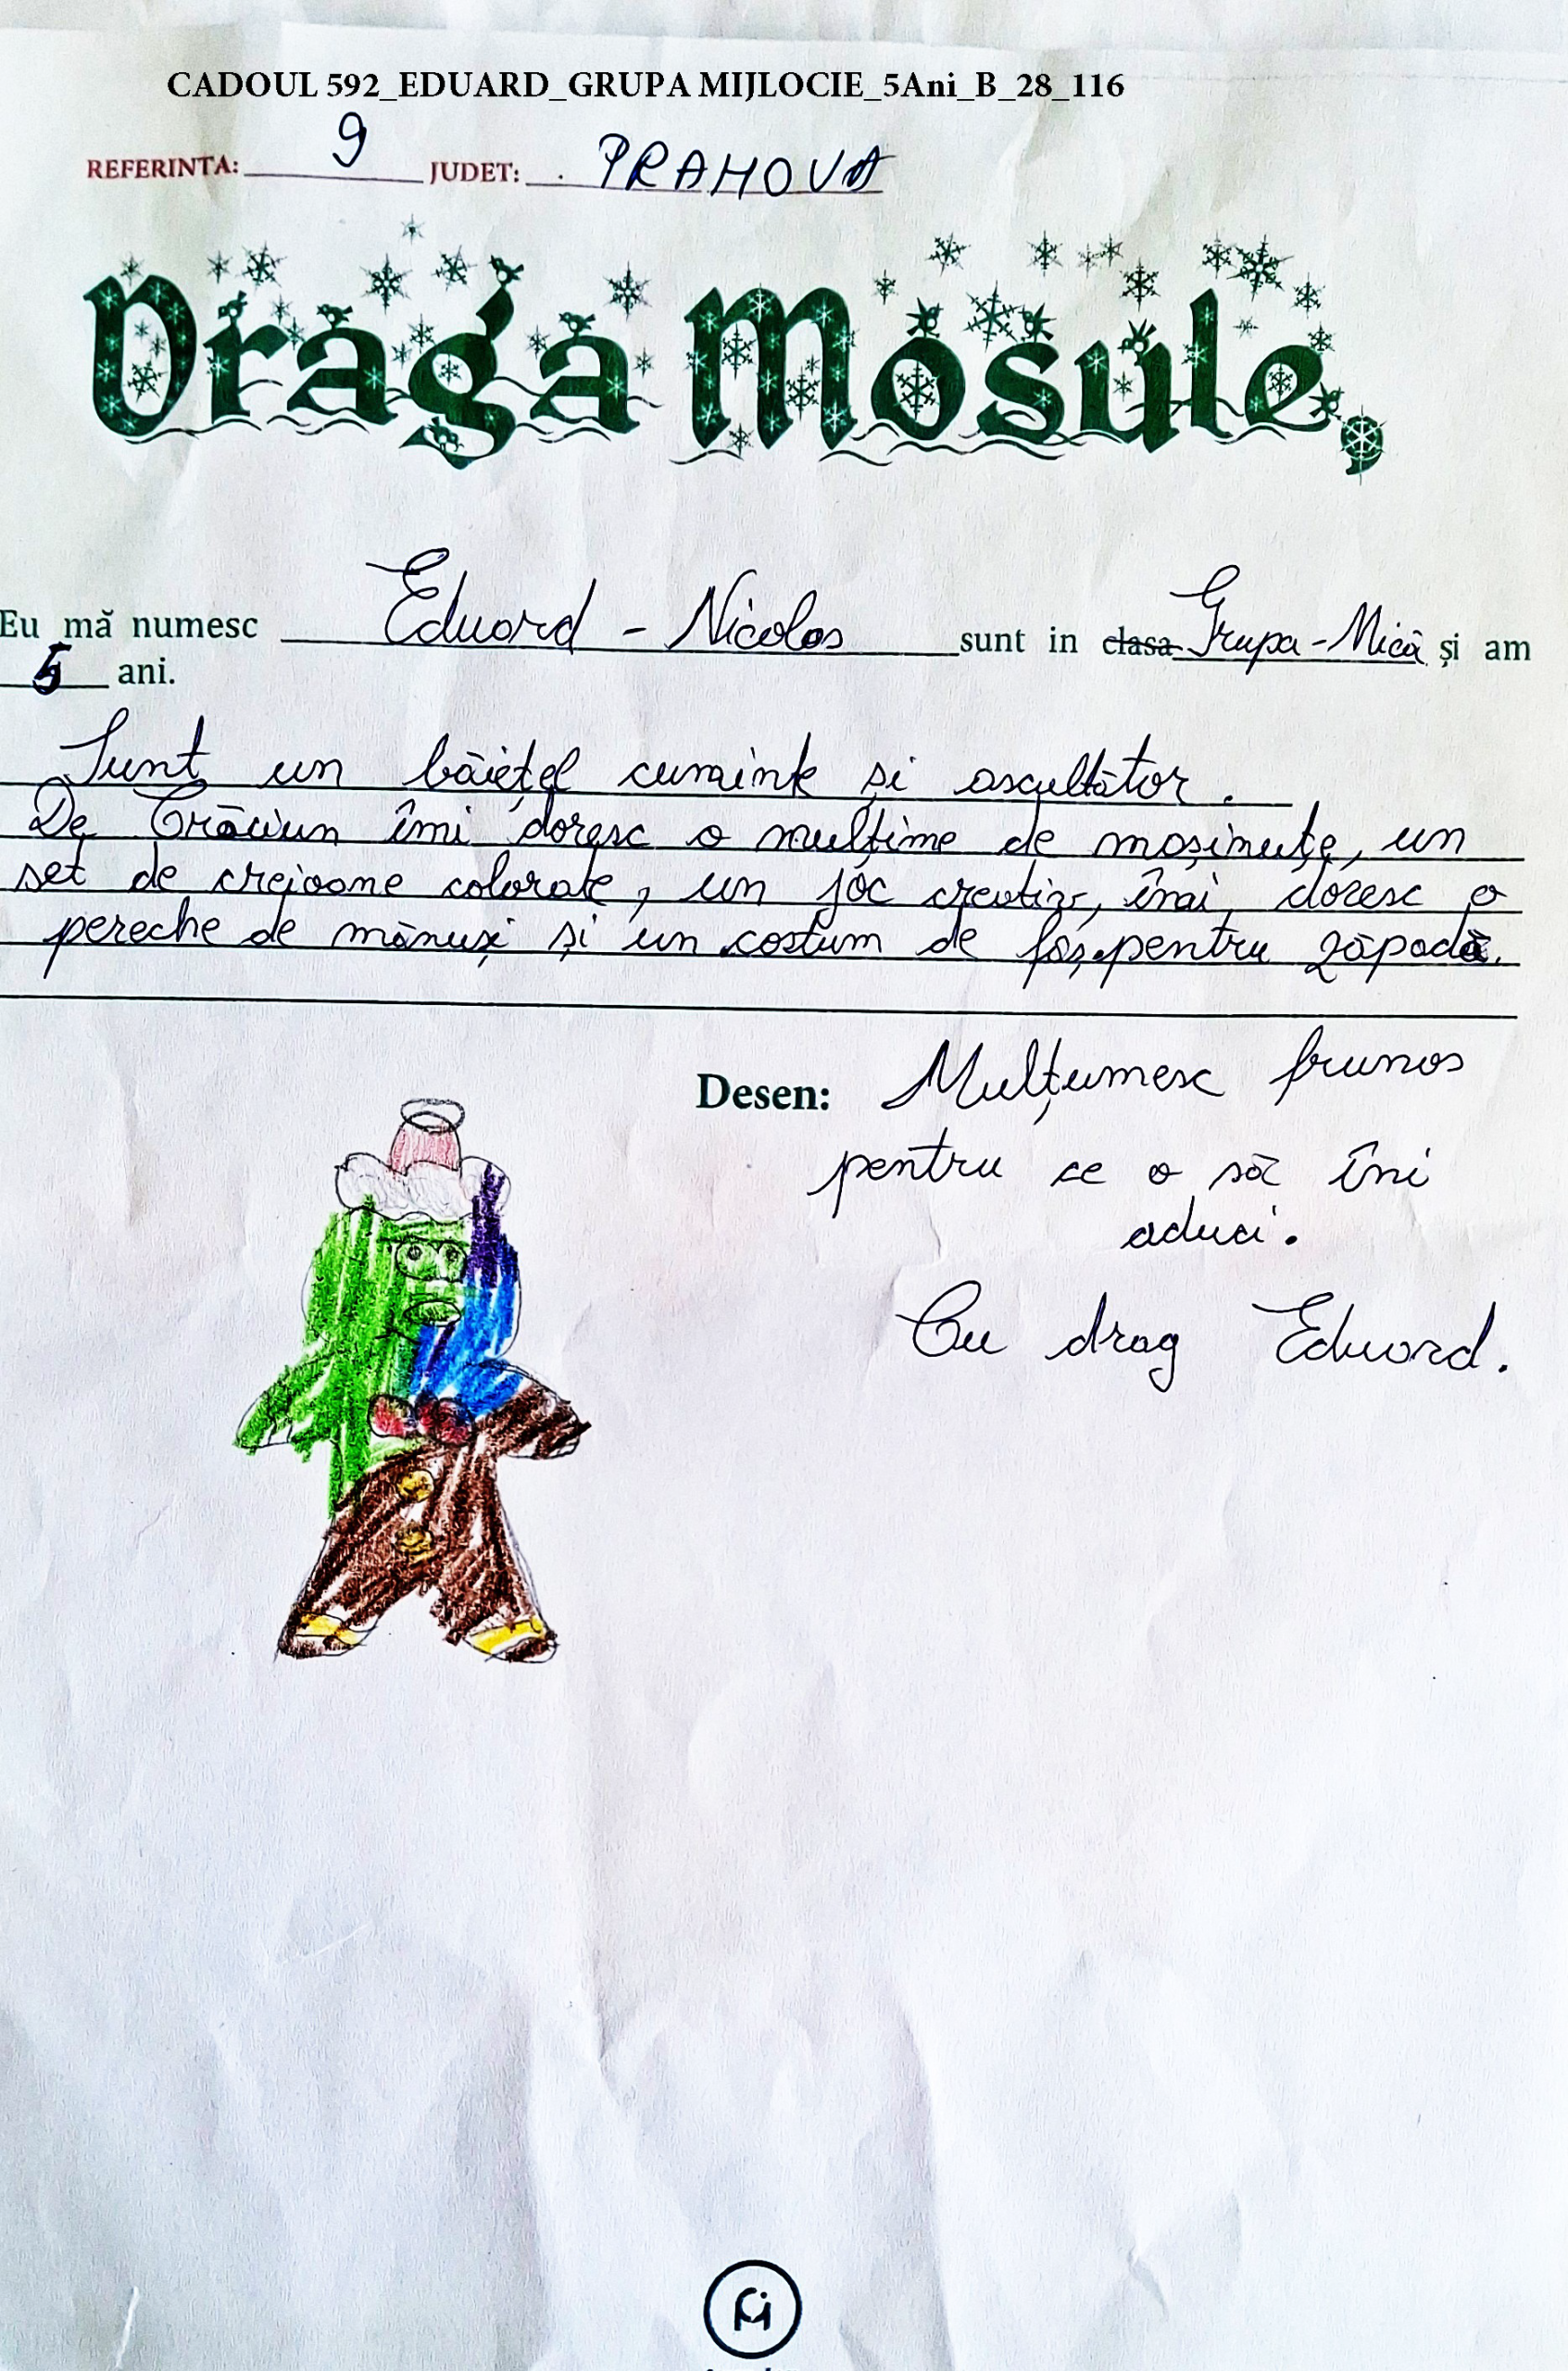 CADOUL 592_EDUARD_GRUPA MIJLOCIE_5Ani_B_28_116
REFERINTA: 9 JUDET: PRAHOVA
Draga Mosule,
Eu mă numesc Eduard - Nicolas sunt in clasa Grupa - Mică și am
5 ani.
Sunt un băiețel cuminte și ascultător.
De Crăciun îmi doresc o mulțime de mașinuțe, un
set de creioane colorate, un joc creativ, îmi doresc o
pereche de mănuși și un costum de fâș pentru zăpadă.
Desen: Mulțumesc frumos
pentru ce o să îmi
aduci.
Cu drag Eduard.